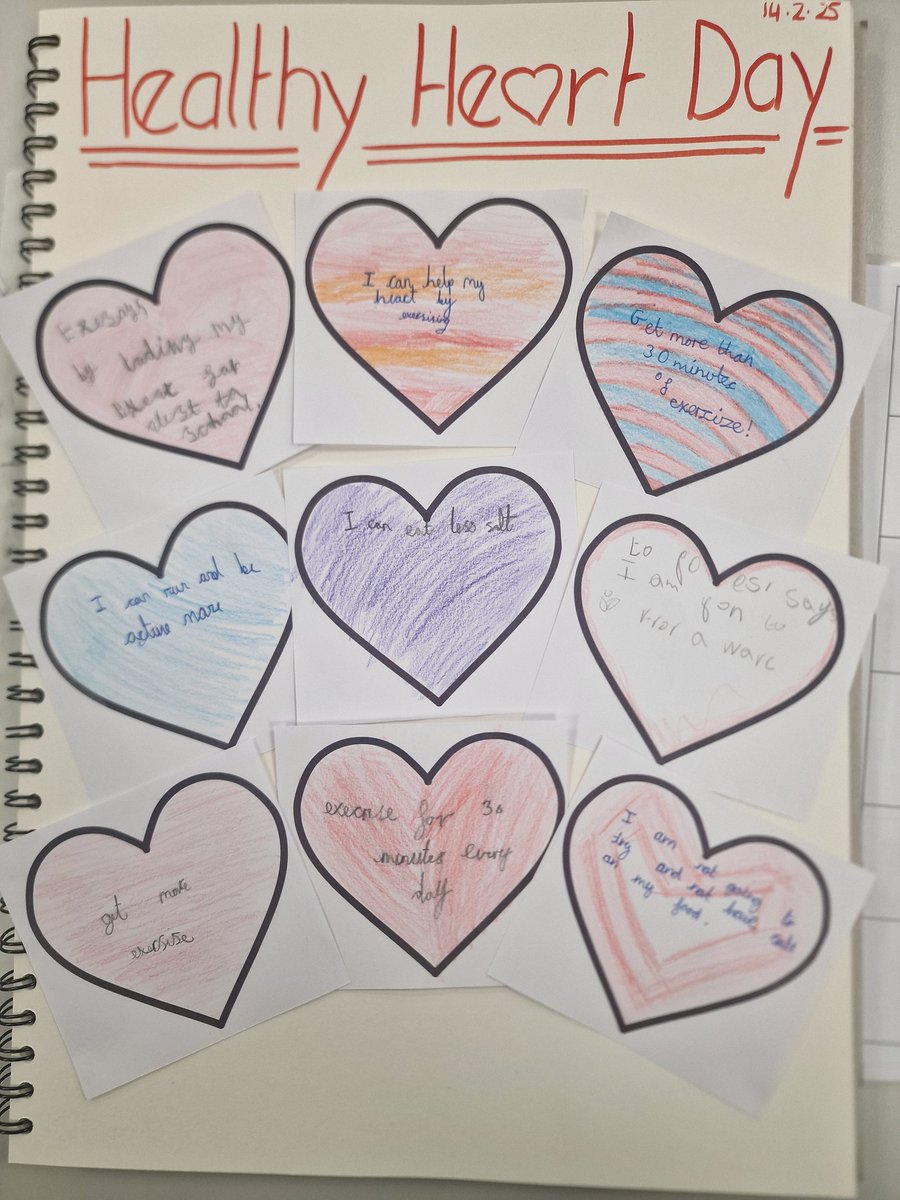 14.2.25
Healthy Heart Day
Exesays
by
my
for
to
school.
I can help my
heart by
exersising
Get more than
30 minutes
of exercize!
I can run and be
active more
I can eat less salt
to
says
I am gon to
for a warc
get more
exersise
exercise for 30
minutes every
day
I am not going to
try and not have salt
on my food.